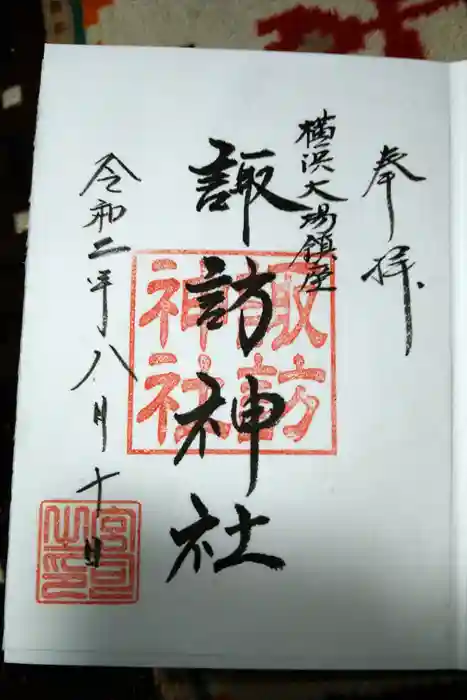 奉拝
横浜大場鎮座
諏訪神社
諏訪
神社
令和二年八月十日
宮司
之印